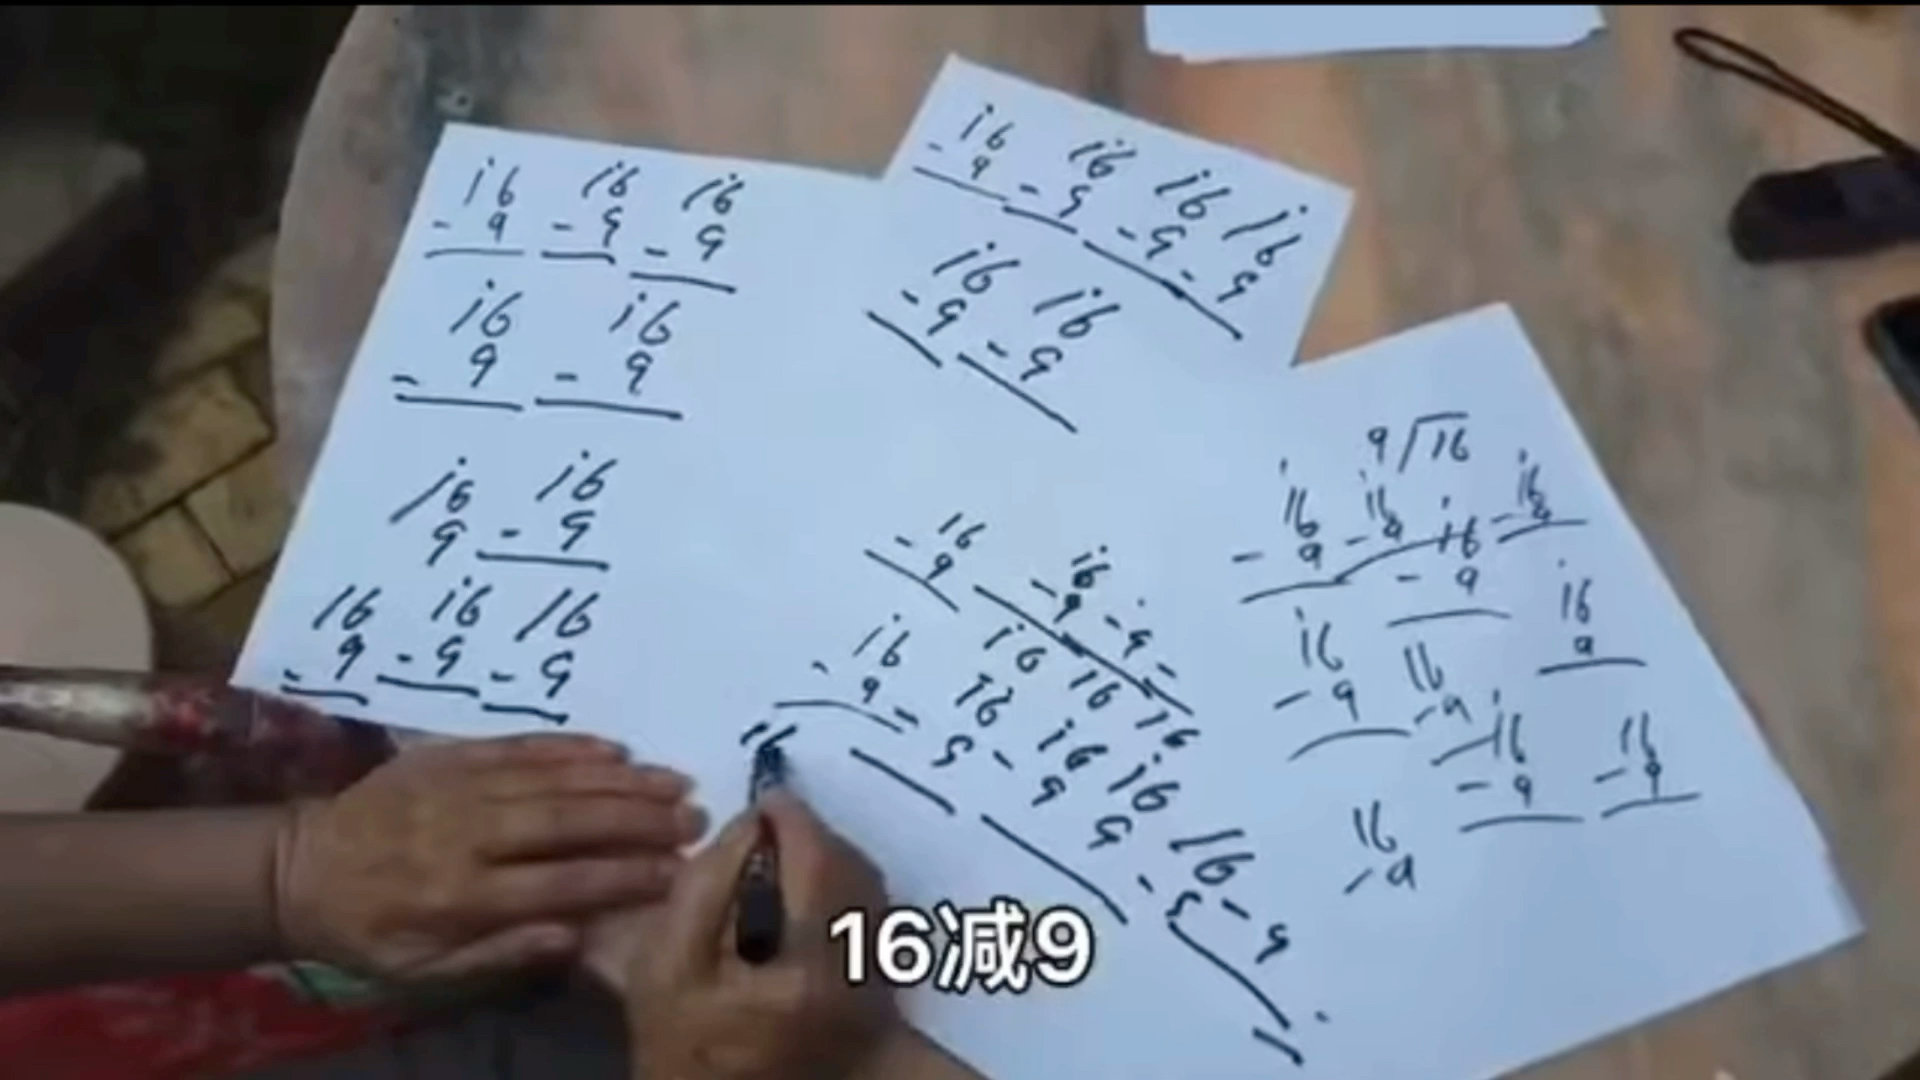 16 16 16
- 9 - 9 - 9
16 16
- 9 - 9
16 16
9 - 9
16 16 16
- 9 - 9 - 9
16 16 16 16
- 9 - 9 - 9 - 9
16 16
- 9 - 9
16 16
- 9 - 9 - 9 -
16 16 16
16 16 16 16 16
- 9 - 9 - 9 9 - 9 - 9
16
9/16
16 16 16 16
- 9 - 9 - 9 - 9
16
9
16 16 16 16
- 9 - 9 - 9 - 9
16
- 9
16减9